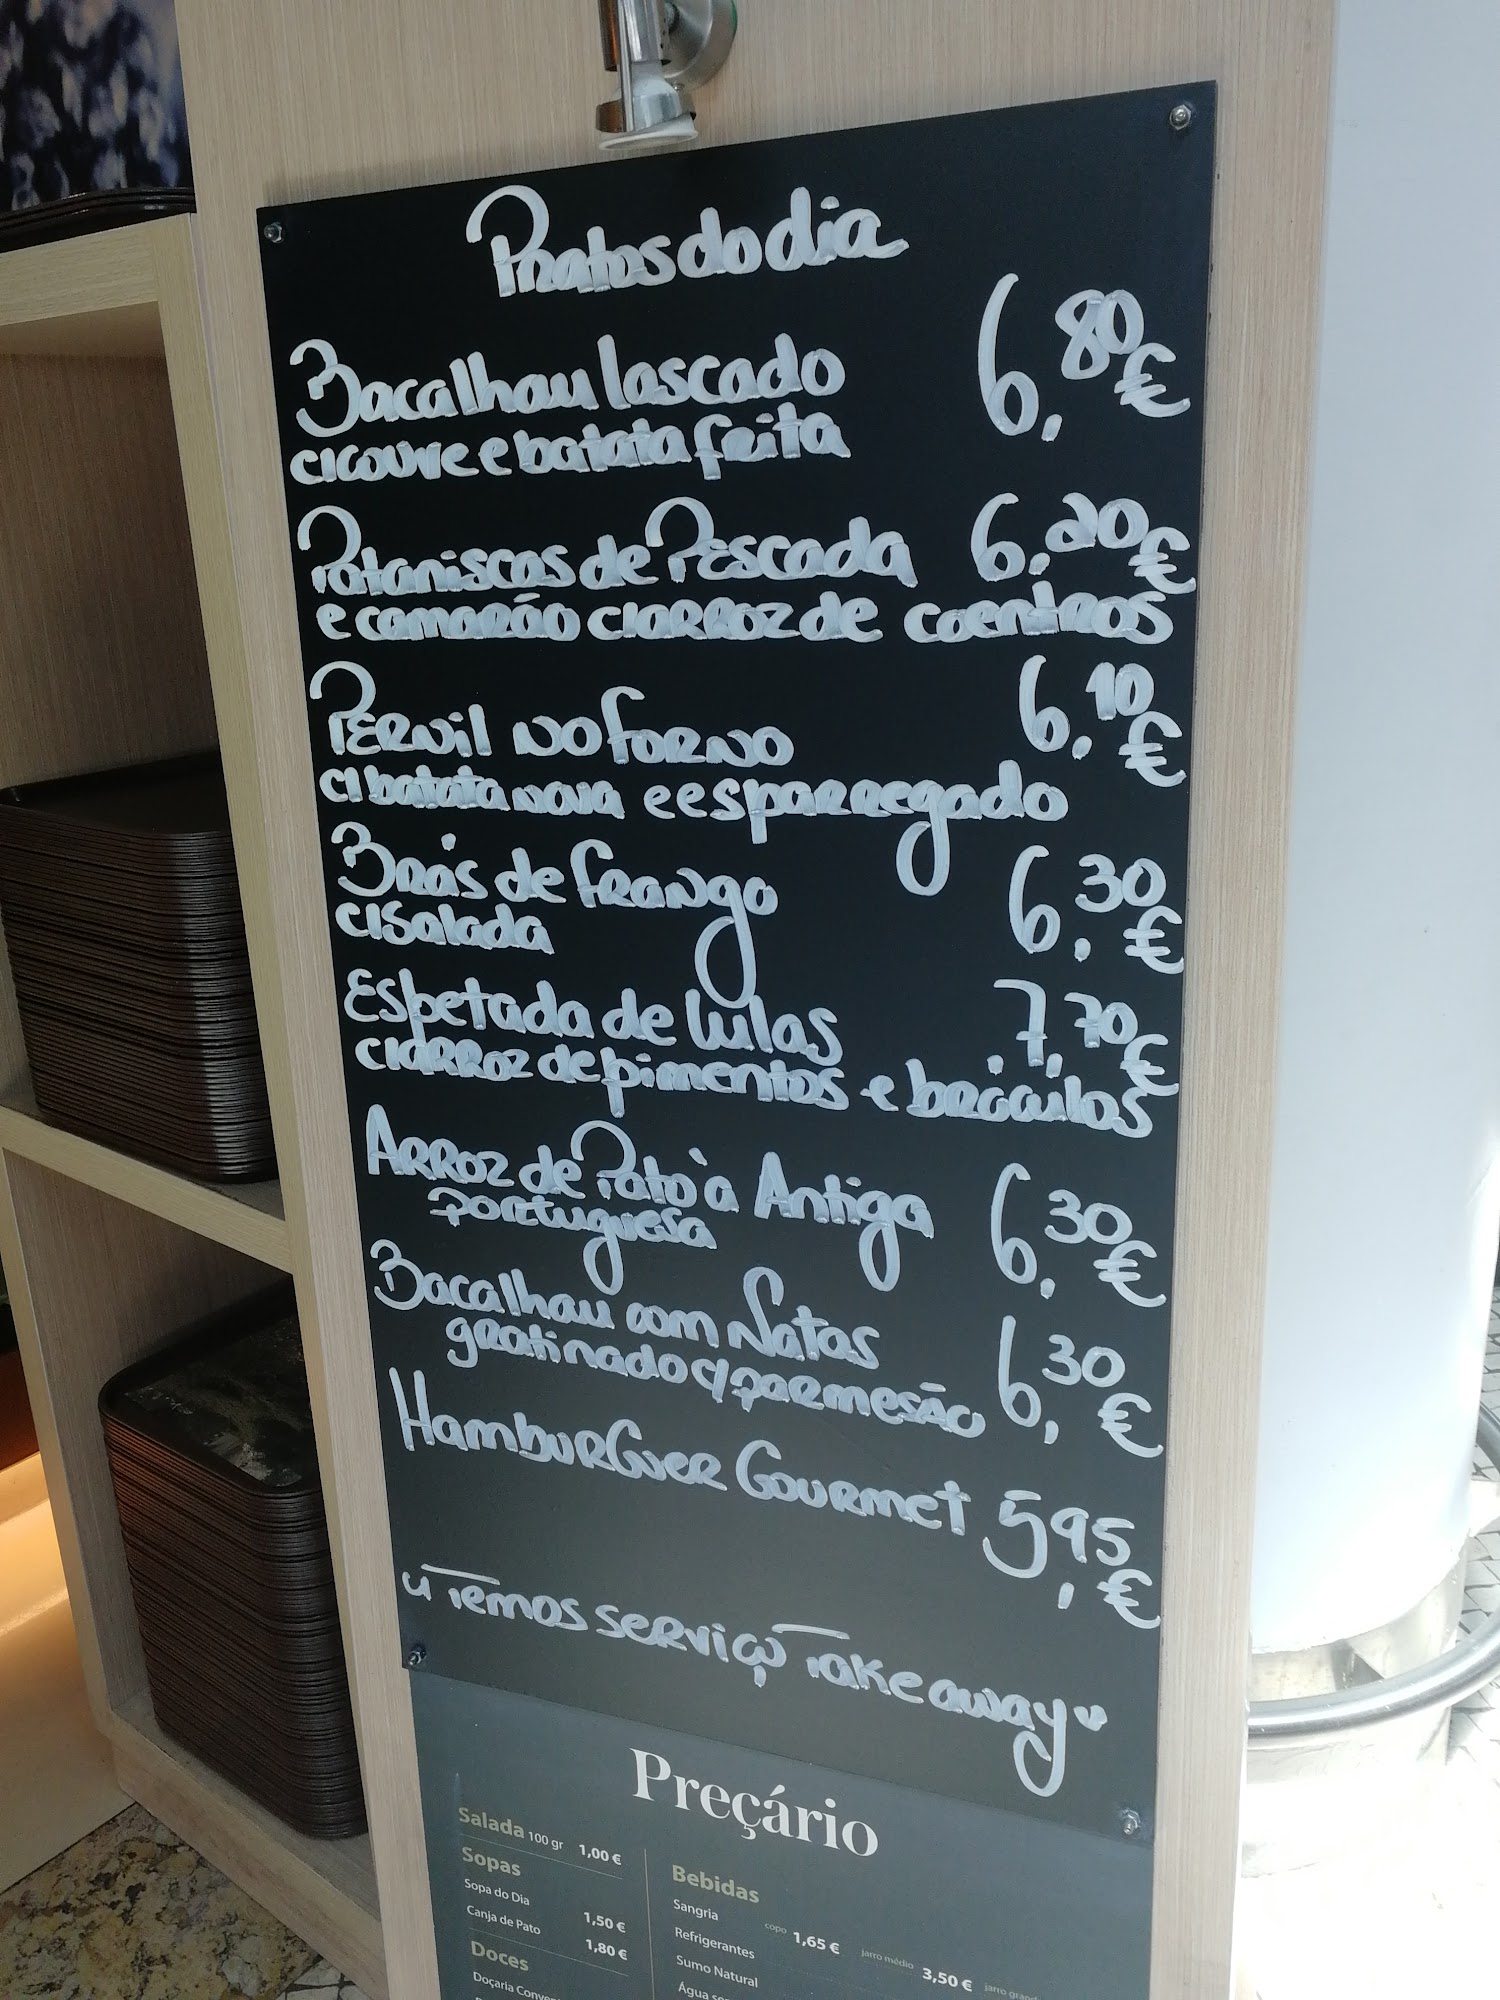 Pratos do dia
Bacalhau lascado 6,80€
c/couve e batata frita
Pataniscas de Pescada 6,20€
e camarão c/arroz de coentros
Pernil no forno 6,10€
c/batata nova e esparregado
Brás de Frango 6,30€
c/Salada
Espetada de lulas 7,70€
c/arroz de pimentos e brócculos
Arroz de Pato à Antiga 6,30€
portuguesa
Bacalhau com Natas 6,30€
gratinado c/parmesão
Hamburguer Gourmet 5,95€
Temos serviço Take away
Preçário
Salada 100 gr 1,00 €
Sopas
Sopa do Dia 1,50 €
Canja de Pato 1,80 €
Doces
Doçaria Conven
Bebidas
Sangria copo 1,65 € jarro médio 3,50 € jarro grand
Refrigerantes
Sumo Natural
Água